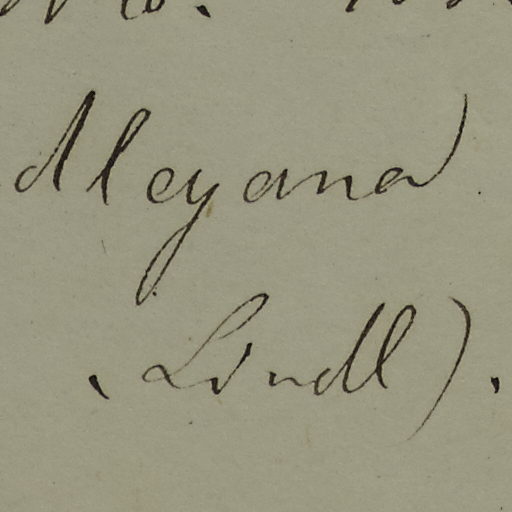 Aleyana)
. Lindl).